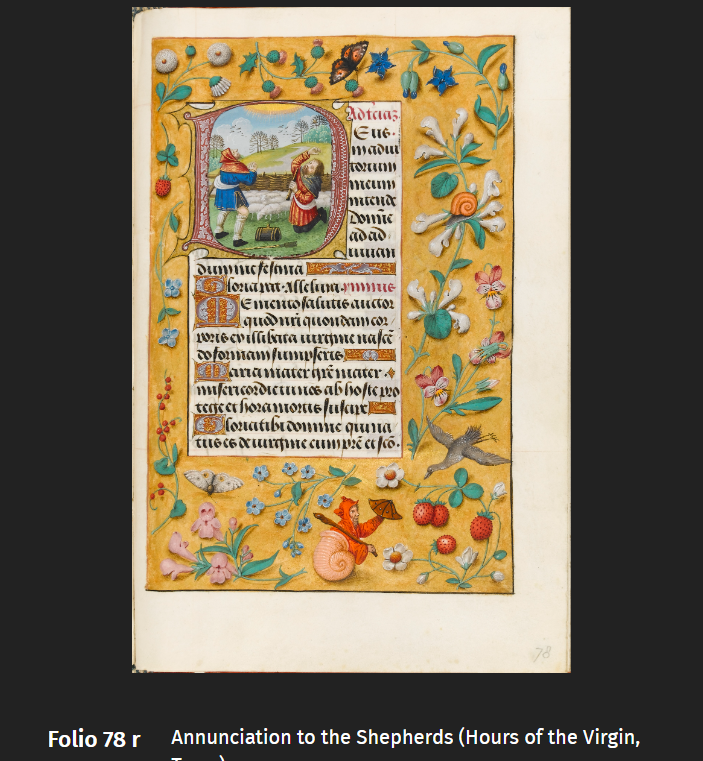 Ad terciaʒ.
Deus.
in adiu
torium
meum
intende
domīe
ad ad
iuuan
dum me festina
Gloria pat. Alleluia. ymnus
Memento salutis auctor
quod nr̄i quondam cor
poris ex illibata virgine nascē
do formam sumpseris
Maria mater gr̄e mater
misericordie tu nos ab hoste pro
tege et hora mortis suscipe
Gloria tibi domine qui na
tus es de virgine cum pr̄e et sc̄o.
78
Folio 78 r Annunciation to the Shepherds (Hours of the Virgin,